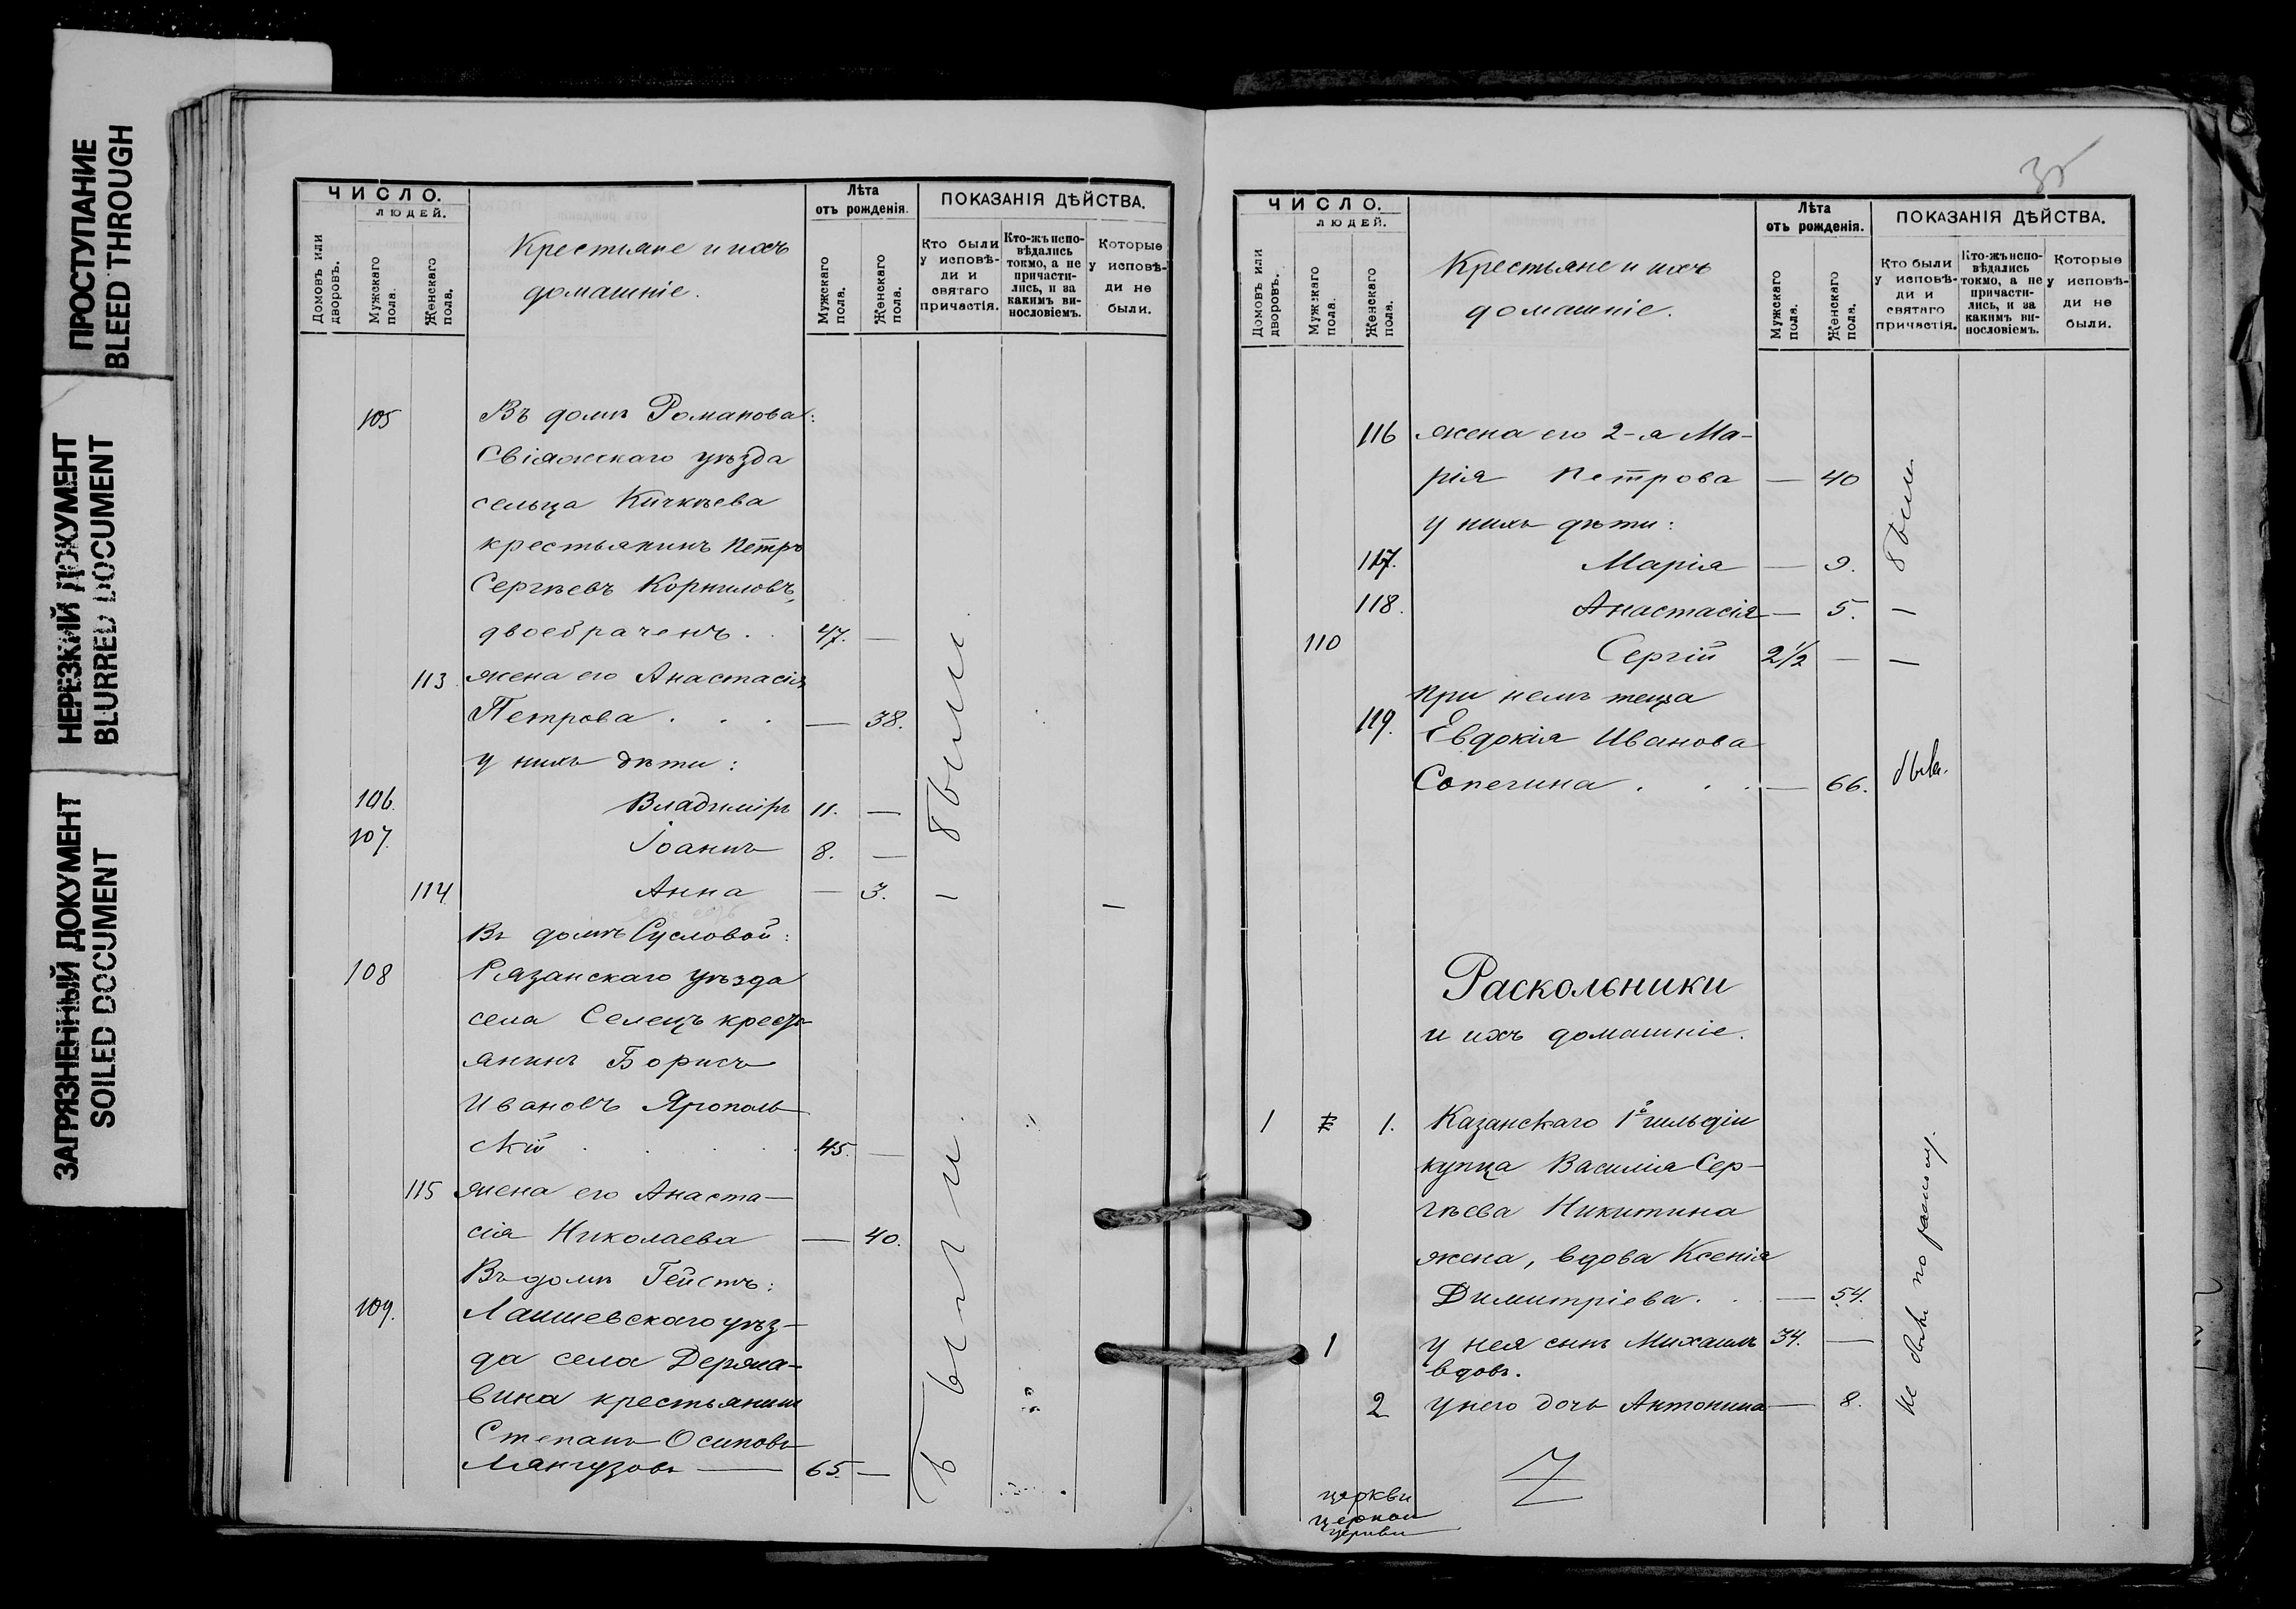 ПРОСТУПАНИЕ
BLEED THROUGH
НЕРЕЗКИЙ ДОКУМЕНТ
BLURRED DOCUMENT
ЗАГРЯЗНЕННЫЙ ДОКУМЕНТ
SOILED DOCUMENT
ЧИСЛО.
ЛЮДЕЙ.
Домовъ или дворовъ.
Мужскаго пола.
Женскаго пола.
Крестьяне и ихъ
домашніе.
Лѣта
отъ рожденія.
Мужскаго пола.
Женскаго пола.
ПОКАЗАНІЯ ДѢЙСТВА.
Кто были у исповѣ-ди и святаго причастія.
Кто-жъ испо-вѣдались токмо, а не причасти-лись, и за какимъ ви-нословіемъ.
Которые у исповѣ-ди не были.
105 Въ домѣ Романова:
Свіяжскаго уѣзда
сельца Кичкѣева
крестьянинъ Петръ
Сергѣевъ Корниловъ,
двоебраченъ . . 47. —
113 жена его Анастасія
Петрова . . . — 38.
у нихъ дѣти:
106. Владиміръ 11. —
107. Іоаннъ 8. —
были
114 Анна — 3. —
Въ домѣ Сусловой:
108 Рязанскаго уѣзда
села Селецъ кресть-
янинъ Борисъ
Ивановъ Ярополь-
скій . . . . 45. —
115 жена его Анаста-
сія Николаева — 40.
Въ домѣ Гейстъ:
109. Лаишевскаго уѣз-
да села Держа-
вина крестьянинъ
Степанъ Осиповъ
Мянгузовъ — 65. —
были.
35
ЧИСЛО.
ЛЮДЕЙ.
Домовъ или дворовъ.
Мужскаго пола.
Женскаго пола.
Крестьяне и ихъ
домашніе.
Лѣта
отъ рожденія.
Мужскаго пола.
Женскаго пола.
ПОКАЗАНІЯ ДѢЙСТВА.
Кто были у исповѣ-ди и святаго причастія.
Кто-жъ испо-вѣдались токмо, а не причасти-лись, и за какимъ ви-нословіемъ.
Которые у исповѣ-ди не были.
116 жена его 2-я Ма-
рія Петрова — 40
у нихъ дѣти:
117. Марія — 9.
были
118. Анастасія — 5. —
110 Сергій 2 1/2 — —
при немъ теща
119. Евдокія Иванова
Сопегина . . . — 66. была.
Раскольники
и ихъ домашніе.
1 1. Казанскаго 1й гильдіи
купца Василія Сер-
гѣева Никитина
жена, вдова Ксенія
Димитріева. . — 54.
1 у нея сынъ Михаилъ 34. —
вдовъ.
2 у него дочь Антонина — 8.
не были по расколу.
церкви
церкви
церкви